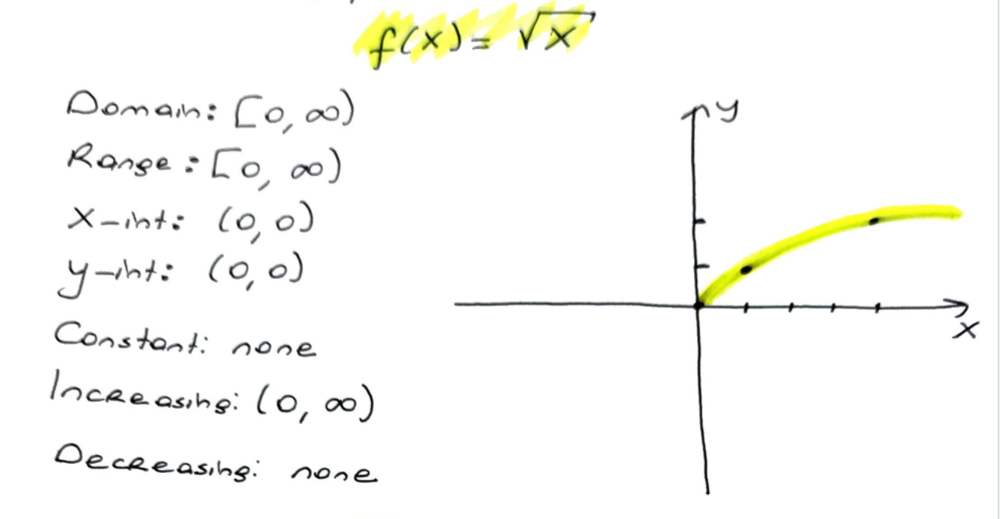 f(x) = √x
Domain: [0, ∞)
Range: [0, ∞)
X-int: (0,0)
y-int: (0,0)
Constant: none
Increasing: (0, ∞)
Decreasing: none
y
x